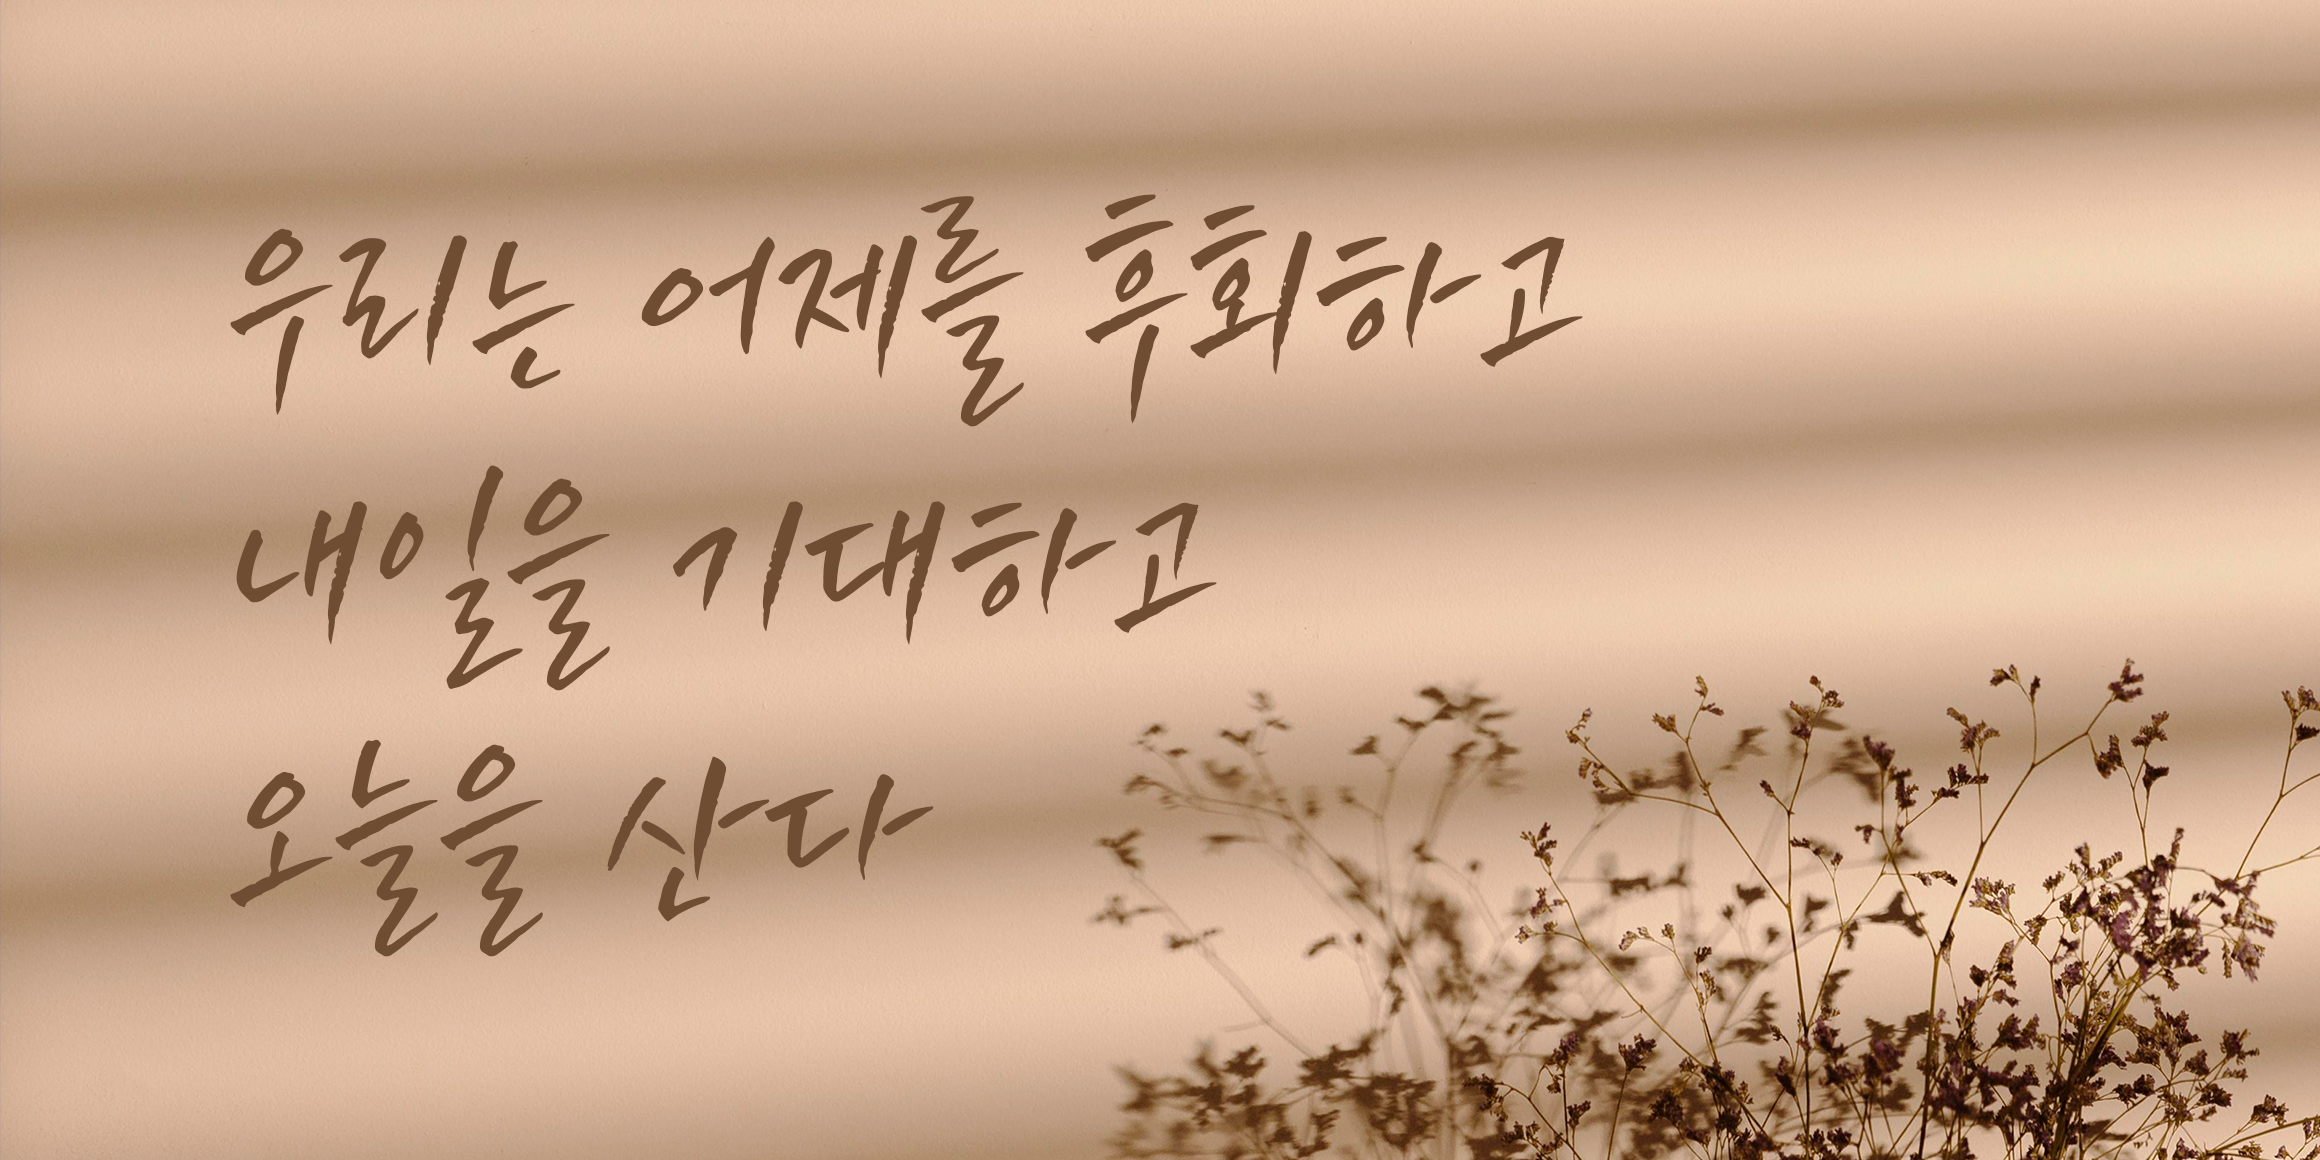 우리는 어제를 후회하고
내일을 기대하고
오늘을 산다